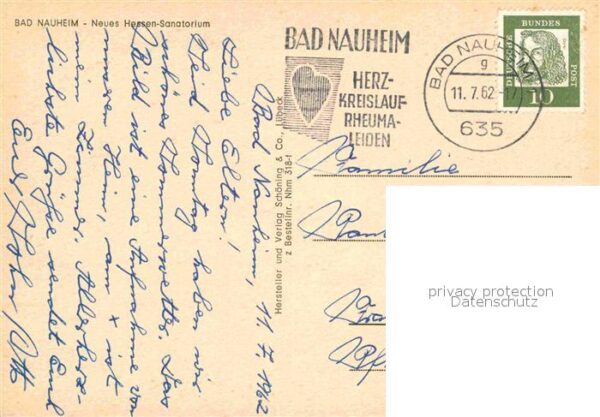 BAD NAUHEIM - Neues Hessen-Sanatorium
Bad Nauheim, 11.7.1962
Liebe Eltern!
Seid Sonntag haben wir
schönes Sommerwetter. Das
Bild ist eine Aufnahme von
unserem Heim, am x ist
mein Zimmer. Allerherz-
lichste Grüße sendet Euch
Euer Sohn Otto
Hersteller und Verlag Schöning & Co., Lübeck
z Bestellnr. Nhm 318-f
BAD NAUHEIM
HERZ-
KREISLAUF-
RHEUMA-
LEIDEN
BAD NAUHEIM
g
11.7.62-17
635
BUNDES
POST
10
Familie
privacy protection
Datenschutz